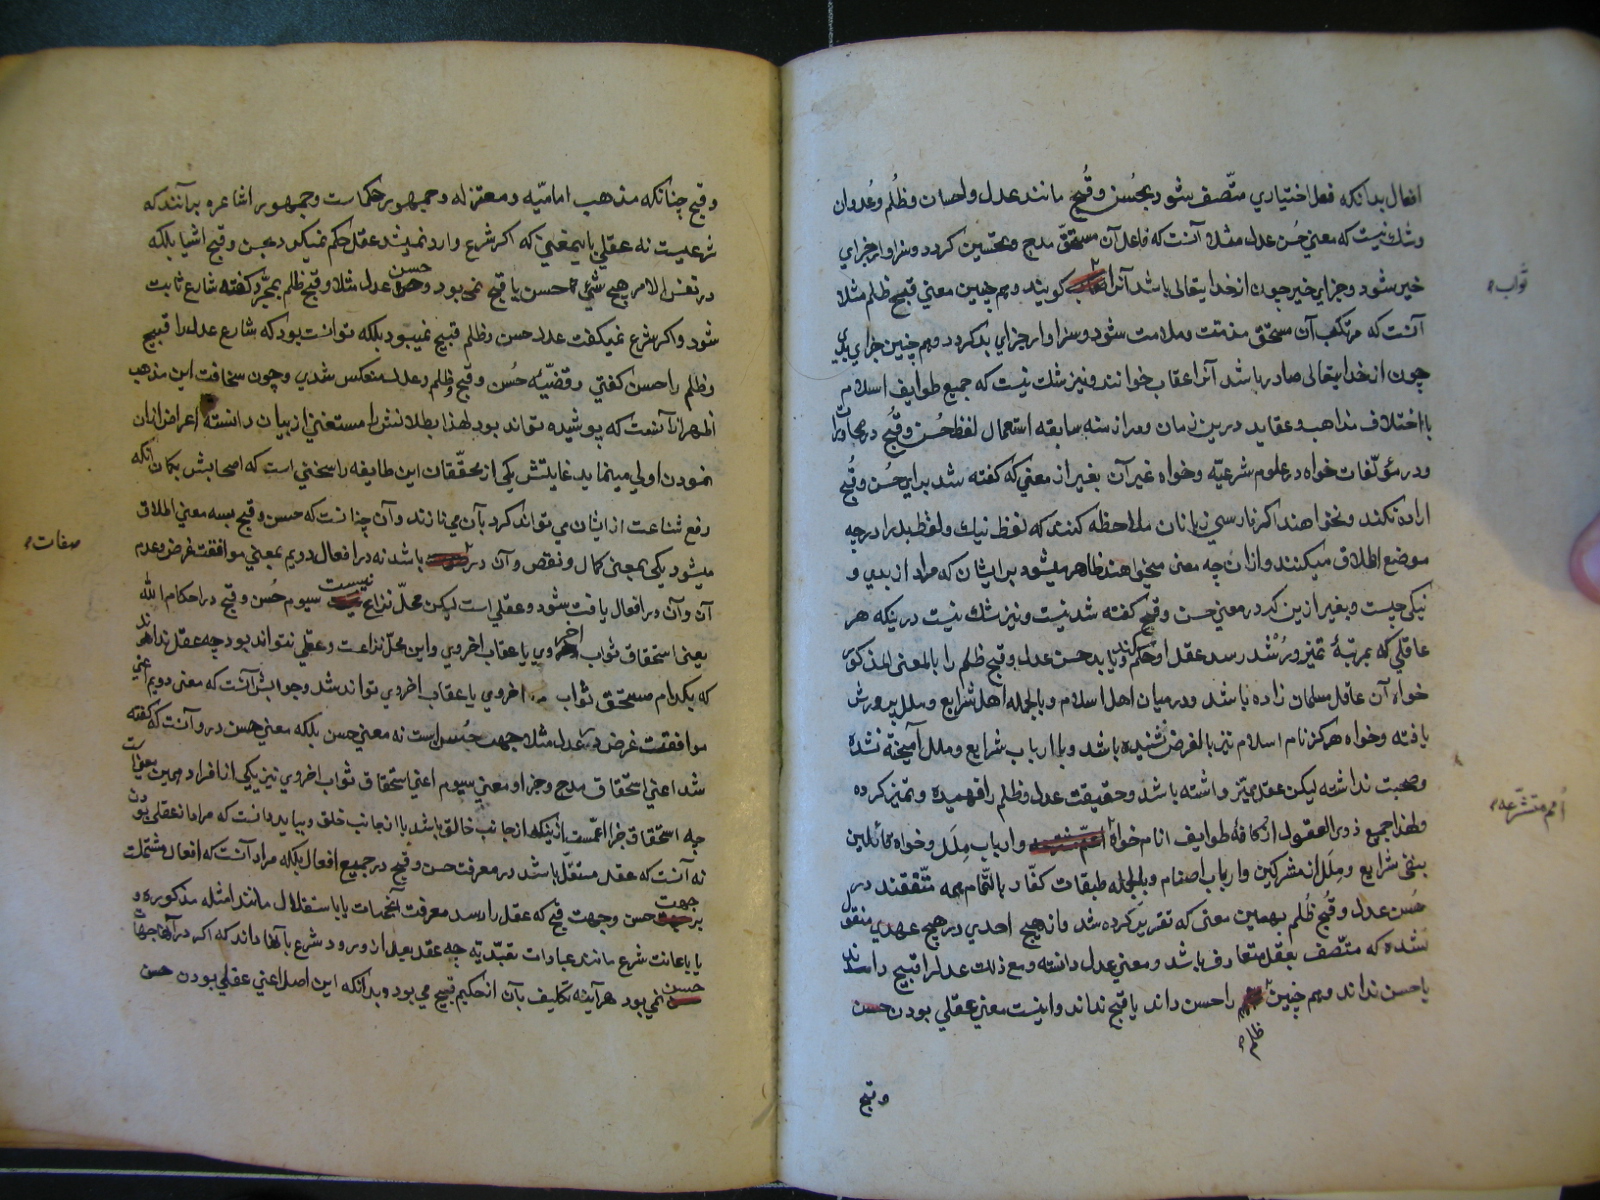 افعال بدانکه فعل اختیاري متّصف شود بحُسن و قُبح مانند عدل و احسان و ظُلم و عُدوان
و شك نیست که معني حُسن عدل مثلا آنست که فاعل آن مستحقّ مدح و تحسین کردد و سزاوار جزاي
خیر شود و جزاي خیر چون از خدایتعالی باشد آنرا کویند و هم چنین معني قبح ظلم مثلا
ثواب
آنست که مرتکب آن مستحق مذمّت و ملامت شود و سزاوار جزاي بد کردد و هم چنین جزاي بدي
چون از خدایتعالی صادر باشد آنرا عقاب خوانند و نیز شك نیست که جمیع طوایف اسلام
با اختلاف مذاهب و عقاید درین زمان و در ازمنه سابقه استعمال لفظ حُسن و قُبح در محاورات
و در مؤلّفات خواه در علوم شرعیّه و خواه غیر آن بغیر از معني که کفته شد براي حُسن و قُبح
اراده نکنند و نخواهند اکر فارسي زبانان ملاحظه کنند که لفظ نیك و لفظ بد را در چه
موضع اطلاق میکنند و ازان چه معني میخواهند ظاهر میشود بر ایشان که مراد از بدي و
نیکي چیست و بغیر ازین که در معني حسن و قبح کفته شد نیست و نیز شك نیست درینکه هر
عاقلي که بمرتبهٔ تمیز و رُشد رسد عقل او حکم کند و یابد حسن عدل و قبح ظلم را بالمعنی المذکور
خواه آن عاقل مسلمان زاده باشد و در میان اهل اسلام و بالجمله اهل شرایع و ملل پرورش
یافته و خواه هرکز نام اسلام نیز بالفرض نشنیده باشد و با ارباب شرایع و ملل آمیخته نشده
و صحبت نداشته لیکن عقل ممیّز داشته باشد و حقیقت عدل و ظلم را فهمیده و تمیز کرده
و لهذا جمیع ذوي العقول از کافهٔ طوایف انام خواه و ارباب مِلَل و خواه قائلین
اُمم متشرّعه
بنفي شرایع و مِلَل از مشرکین و ارباب اصنام و بالجمله طبقات کفّار بالتّمام همه متّفقند در
حُسن عدل و قُبح ظُلم بهمین معني که تقریر کرده شد و از هیچ احدي در هیچ عهدي منقول
نشده که متّصف بعقل متعارف باشد و معني عدل دانسته و مع ذلك عدل را قبیح داند
یا حسن نداند و هم چنین را حسن داند یا قبیح نداند و اینست معني عقلي بودن حسن
ظلم
و قبح
و قبح چنانکه مذهب امامیّه و معتزله و جمهور حکماست و جمهور اشاعره برآنند که
شرعیست نه عقلي باینمعني که اکر شرع وارد نمیشد عقل حکم نمیکرد بحسن و قبح اشیا بلکه
در نفس الامر هیچ شئ حسن یا قبیح نمي بود و حسن عدل مثلا و قبح ظلم بمجرّد کفته شارع ثابت
شود و اکر شرع نمیکفت عدل حسن و ظلم قبیح نمیبود بلکه توانست بود که شارع عدل را قبیح
و ظلم را حسن کفتي و قضیّهٔ حُسن و قبح و ظلم و عدل منعکس شدي و چون سخافت این مذهب
اظهر ازآنست که پوشیده تواند بود لهذا بطلانش را مستغني از بیان دانسته اعراض ازان
نمودن اولي مینماید غایتش یکي از محقّقان این طایفه را سخني است که اصحابش بکمان آنکه
رفع شناعت از ایشان مي تواند کرد بآن مي نازند و آن چنانست که حسن و قبح بسه معني اطلاق
میشود یکي بمعني کمال و نقص و آن در باشد نه در افعال دویم بمعني موافقت غرض و عدم
صفات
آن و آن در افعال یافت شود و عقلي است لیکن محلّ نزاع نیست سیوم حُسن و قبح در احکام الله
یعني استحقاق ثواب اخروي یا عقاب اخروي و این محلّ نزاعست و عقلي نتواند بود چه عقل نداند
که بکدام مستحق ثواب اخروي یا عقاب اخروي تواند شد و جوابش آنست که معني دویم اعني
موافقت غرض در عدل مثلا جهت حُسن است نه معني حسن بلکه معني حسن درو آنست که کفته
شد اعني استحقاق مدح و جزا و معني سیوم اعني استحقاق ثواب اخروي نیز یکي از افراد همین معنیست
چه استحقاق جزا اعمّست ازینکه از جانب خالق باشد یا از جانب خلق و بباید دانست که مراد از عقلي بودن
نه آنست که عقل مستقلّ باشد در معرفت حسن و قبح در جمیع افعال بلکه مراد آنست که افعال مشتملست
بر جهت حسن و جهت قبح که عقل را رسد معرفت آنجهات یا باستقلال مانند امثله مذکوره و
یا باعانت شرع مانند عبادات تعبّدیّه چه عقل بعد از ورود شرع بآنها داند که اکر در آنها جهات
حسن نمي بود هرآینه تکلیف بآن از حکیم قبیح مي بود و بدانکه این اصل اعني عقلي بودن حسن